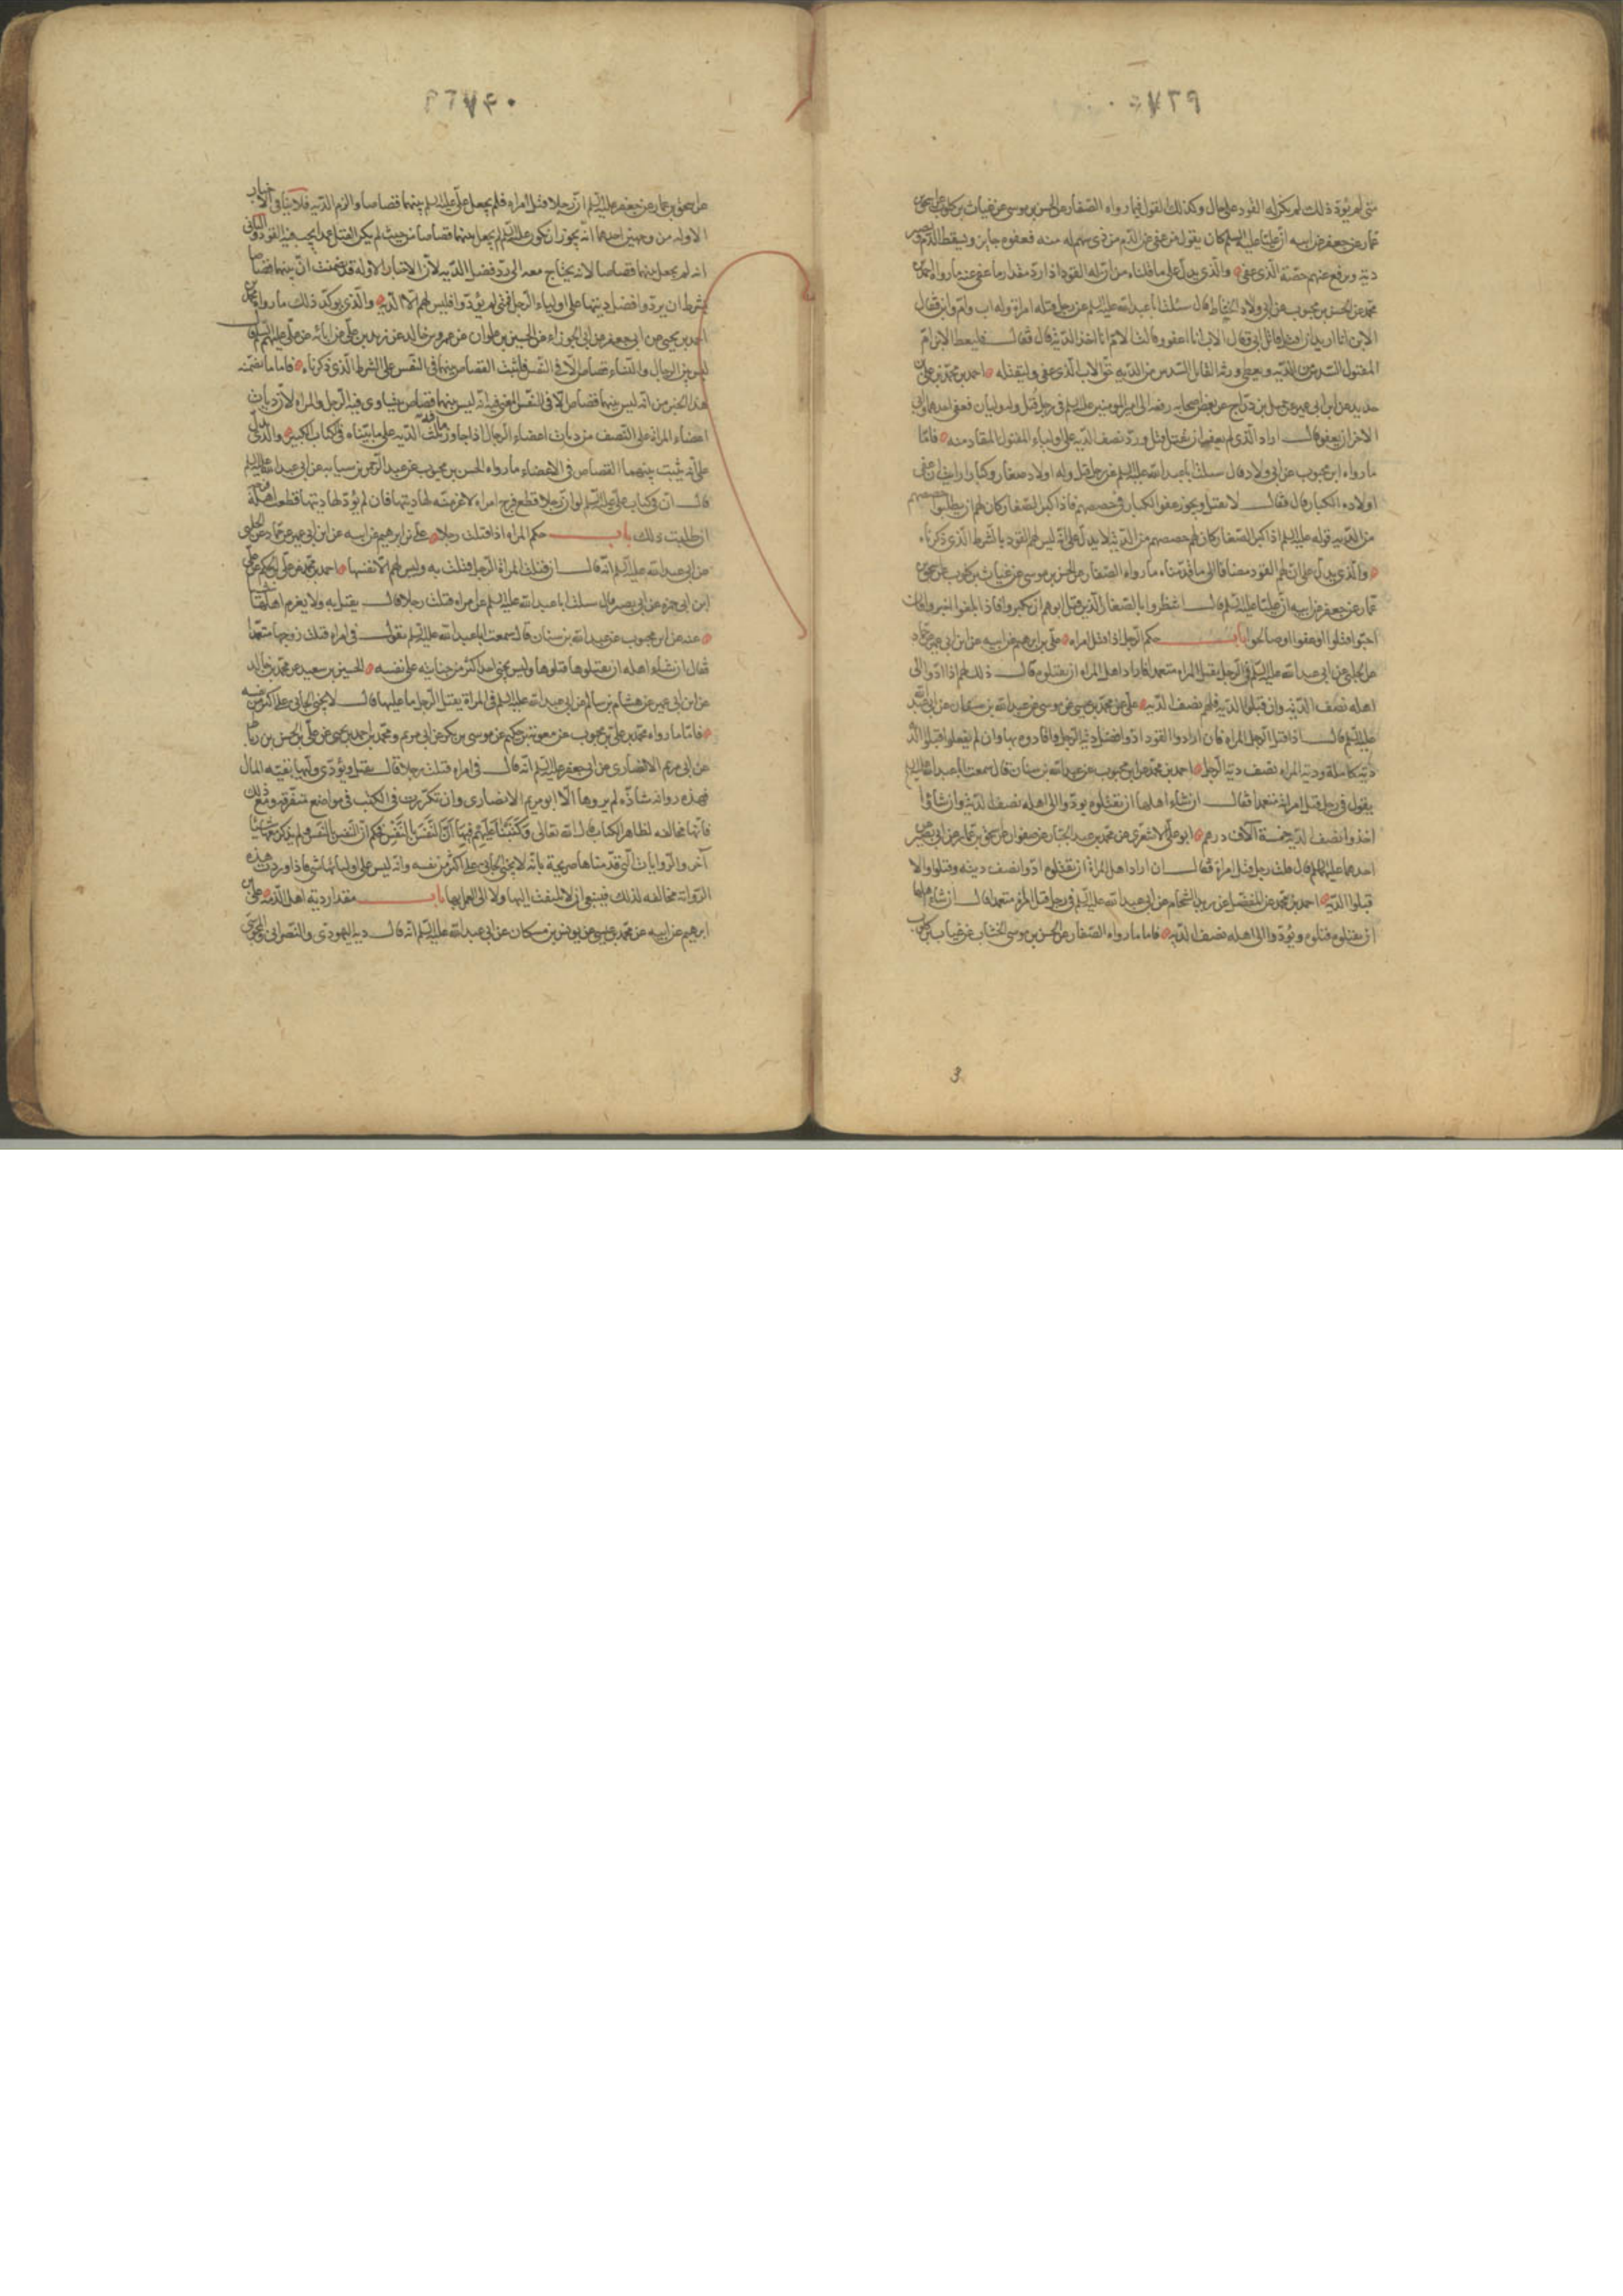 متى لم يؤدّ ذلك لم يكن له القود على حال وكذلك القول فيما رواه الصفار عن الحسن بن موسى عن غياث بن كلوب عن اسحق بن
عمار عن جعفر عن ابيه ان عليا عليه السلم كان يقول من عفى عن الدم من ذى سهم له منه فعفوه جايز ويسقط الدم وتصير
دية ويرفع عنهم حصة الذى عفى والذى يدل على ما قلناه من ان له القود اذا ردّ مقدار ما عفى عنه ما رواه احمد بن
محمد عن الحسن بن محبوب عن ابى ولاد الحناط قال سئلت ابا عبد الله عليه السلم عن رجل قتله امراة وله اب وام وابن فقال
الابن انا اريد ان اقتل قاتل ابى وقال الاب انا اعفو وقالت الام انا اخذ الدية قال فقال فليعط الابن ام
المقتول السدس من الدية ويعطى ورثة القاتل السدس من الدية حق الاب الذى عفى وليقتله احمد بن محمد عن على بن
حديد عن ابن ابى عمير عن جميل بن دراج عن بعض اصحابه رفعه الى امير المومنين عليه السلم فى رجل قتل وله وليان فعفى احدهما وابى
الاخر ان يعفو قال اراد الذى لم يعف ان يقتل قتل وردّ نصف الدية على اولياء المقتول المقاد منه فاما
ما رواه ابن محبوب عن ابى ولاد قال سئلت ابا عبد الله عليه السلم عن رجل قتل وله اولاد صغار وكبار ارايت ان عفى
اولاده الكبار قال فقال لا يقتل ويجوز عفو الكبار فى حصصهم فاذا كبر الصغار كان لهم ان يطلبوا حصصهم
من الدية قوله عليه السلم اذا كبر الصغار كان لهم حصصهم من الدية لا يدل على انه ليس لهم القود بالشرط الذى ذكرناه
والذى يدل على ان لهم القود مضافا الى ما قدمناه ما رواه الصفار عن الحسن بن موسى عن غياث بن كلوب عن اسحق بن
عمار عن جعفر عن ابيه ان عليا عليه السلم قال انتظروا بالصغار الذين قتل ابوهم ان يكبروا فاذا بلغوا خيروا فان
احبوا قتلوا او عفوا او صالحوا باب حكم الرجل اذا قتل امراه على بن ابرهيم عن ابيه عن ابن ابى عمير عن حماد
عن الحلبى عن ابى عبد الله عليه السلم فى الرجل يقتل المراه متعمدا فاراد اهل المراه ان يقتلوه قال ذلك لهم اذا ادوا الى
اهله نصف الدية وان قبلوا الدية فلهم نصف الدية على عن محمد بن عيسى عن يونس عن عبد الله بن مسكان عن ابى عبد الله
عليه السلم قال اذا قتل الرجل المراه فان ارادوا القود ادوا فضل دية الرجل واقادوه بها وان لم يفعلوا قبلوا الدية
دية كاملة ودية المراه نصف دية الرجل احمد بن محمد عن ابن محبوب عن عبد الله بن سنان قال سمعت ابا عبد الله عليه السلم
يقول فى رجل قتل امراة متعمدا فقال ان شاء اهلها ان يقتلوه يؤدوا الى اهله نصف الدية وان شاؤا
اخذوا نصف الدية خمسة آلاف درهم ابو على الاشعرى عن محمد بن عبد الجبار عن صفوان عن اسحق بن عمار عن ابى بصير عن
احدهما عليهما السلم قال قلت رجل قتل امراة فقال ان اراد اهل المراة ان يقتلوه ادوا نصف ديته وقتلوه والا
قبلوا الدية احمد بن محمد عن المفضل عن زيد الشحام عن ابى عبد الله عليه السلم فى رجل قتل امراة متعمدا قال ان شاء اهلها
ان يقتلوه قتلوه ويؤدوا الى اهله نصف الدية فاما ما رواه الصفار عن الحسن بن موسى الخشاب عن غياث بن كلوب
عن اسحق بن عمار عن جعفر عليه السلم ان رجلا قتل امراه فلم يجعل على عليه السلم بينهما قصاصا والزم الدية فلا ينافى الاخبار
الاوله من وجهين احدهما انه يجوز ان يكون عليه السلم لم يجعل بينهما قصاصا من حيث لم يكن القتل عمدا يجب فيه القود والثانى
انه لم يجعل بينهما قصاصا لانه يحتاج معه الى ردّ فضل الدية لان الاخبار الاوله قد تضمنت ان بينهما قصاصا
بشرط ان يردوا فضل ديتها على اولياء الرجل فمتى لم يؤدوا فليس لهم الا الدية والذى يوكد ذلك ما رواه محمد بن
احمد بن يحيى عن ابى جعفر عن ابى الجوزاء عن الحسين بن علوان عن عمرو بن خالد عن زيد بن على عن ابائه عن على عليهم السلم قال
ليس بين الرجال والنساء قصاص الا فى النفس فاثبت القصاص بينهما فى النفس على الشرط الذى ذكرناه فاما ما تضمنه
هذا الخبر من انه ليس بينهما قصاص الا فى النفس المعنى فيه انه ليس بينهما قصاص يتساوى فيه الرجل والمراه لان ديات
اعضاء المراة على النصف من ديات اعضاء الرجال اذا جاوز ثلث الدية على ما بيناه فى كتابنا الكبير والذى يدل
على انه يثبت بينهما القصاص فى الاعضاء ما رواه الحسن بن محبوب عن عبد الرحمن بن سيابه عن ابى عبد الله عليه السلم
قال ان فى كتاب على عليه السلم لو ان رجلا قطع فرج امراه لاغرمته لها ديتها فان لم يؤد لها ديتها قطعت لها فرجه
ان طلبت ذلك باب حكم المراه اذا قتلت رجلا على بن ابرهيم عن ابيه عن ابن ابى عمير عن حماد عن الحلبى
عن ابى عبد الله عليه السلم انه قال ان قتلت المراة الرجل قتلت به وليس لهم الا نفسها احمد بن محمد عن على بن الحكم عن على
ابن ابى حمزه عن ابى بصير قال سئلت ابا عبد الله عليه السلم عن امراه قتلت رجلا قال يقتل به ولا يغرم اهلها شيئا
عنه عن ابن محبوب عن عبد الله بن سنان قال سمعت ابا عبد الله عليه السلم يقول فى امراه قتلت زوجها متعمدا
فقال ان شاء اهله ان يقتلوها قتلوها وليس يجنى احد اكثر من جنايته على نفسه الحسين بن سعيد عن محمد بن خالد
عن ابن ابى عمير عن هشام بن سالم عن ابى عبد الله عليه السلم فى المراة يقتل الرجل ما عليها قال لا يجنى الجانى على اكثر من نفسه
فاما ما رواه محمد بن على بن محبوب عن معوية بن حكيم عن موسى بن بكر عن ابى مريم ومحمد بن احمد بن يحيى عن على بن الحسن بن رباط
عن ابى مريم الانصارى عن ابى جعفر عليه السلم انه قال فى امراه قتلت رجلا قال يقتل ويؤدى وليها بقية المال
فهذه روايه شاذه لم يروها الا ابو مريم الانصارى وان تكررت فى الكتب فى مواضع متفرقة ومع ذلك
فانها مخالفه لظاهر الكتاب قال الله تعالى وكتبنا عليهم فيها ان النفس بالنفس فحكم ان النفس بالنفس ولم يذكر معها شيئا
آخر والروايات التى قدمناها صريحة بانه لا يجنى الجانى على اكثر من نفسه وانه ليس على اوليائها شى فاذا وردت هذه
الرواية مخالفه لذلك فينبغى ان لا يلتفت اليها ولا الى العمل بها باب مقدار دية اهل الذمه على بن
ابرهيم عن ابيه عن محمد بن عيسى عن يونس بن مسكان عن ابى عبد الله عليه السلم انه قال دية اليهودى والنصرانى والمجوسى